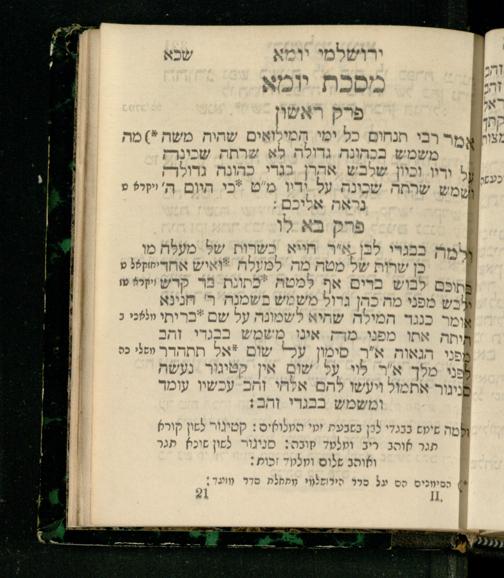 ירושלמי יומא שכא
מסכת יומא
פרק ראשון
אמר רבי תנחום כל ימי המילואים שהיה משה *) מה
משמש בכהונה גדולה לא שרתה שכינה
על ידיו וכיון שלבש אהרן בגדי כהונה גדולה
ושמש שרתה שכינה על ידיו מ״ט *כי היום ה׳ ויקרא ט
נראה אליכם:
פרק בא לו
ולמה בבגדי לבן א״ר חייא כשרות של מעלה מו
כן שרות של מטה מה למעלה *ואיש אחד יחזקאל ט
בתוכם לבוש בדים אף למטה *כתונת בד קדש ויקרא טז
ילבש מפני מה כהן גדול משמש בשמנה ר׳ חנינא
אומר כנגד המילה שהיא לשמונה על שם *בריתי מלאכי ב
היתה אתו מפני מה אינו משמש בבגדי זהב
מפני הגאוה א״ר סימון על שום *אל תתהדר משלי כה
לפני מלך א״ר לוי על שום אין קטיגור נעשה
סניגור אתמול ויעשו להם אלהי זהב עכשיו עומד
ומשמש בבגדי זהב:
ולמה שימש בבגדי לבן בשבעת ימי המלואים: קטיגור לשון קורא
תגר אוהב ריב ומלמד חובה: סניגור לשון שונא תגר
ואוהב שלום ומלמד זכות:
*) הסימנים הם על סדר הירושלמי מתחלת סדר מועד:
21 II.
זהב
זהב